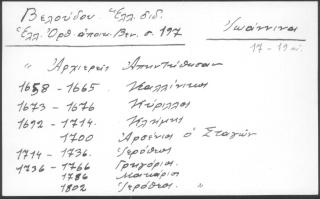 Βελούδου. Ἑλλ. διδ.
Ἑλλ. Ὀρθ. ἀποικ. Βεν. σ. 197
Ἰωάννινα
17 - 19 αἰ.
" Ἀρχιερεῖς
1658 - 1665. Καλλίνικος
1673 - 1676 Κύριλλος
1692 - 1714. Κλήμης
1700 Ἀρσένιος ὁ Σταγῶν
1714 - 1736. Ἱερόθεος
1736 - 1766 Γρηγόριος.
1786 Μακάριος
1802 Ἱερόθεος "